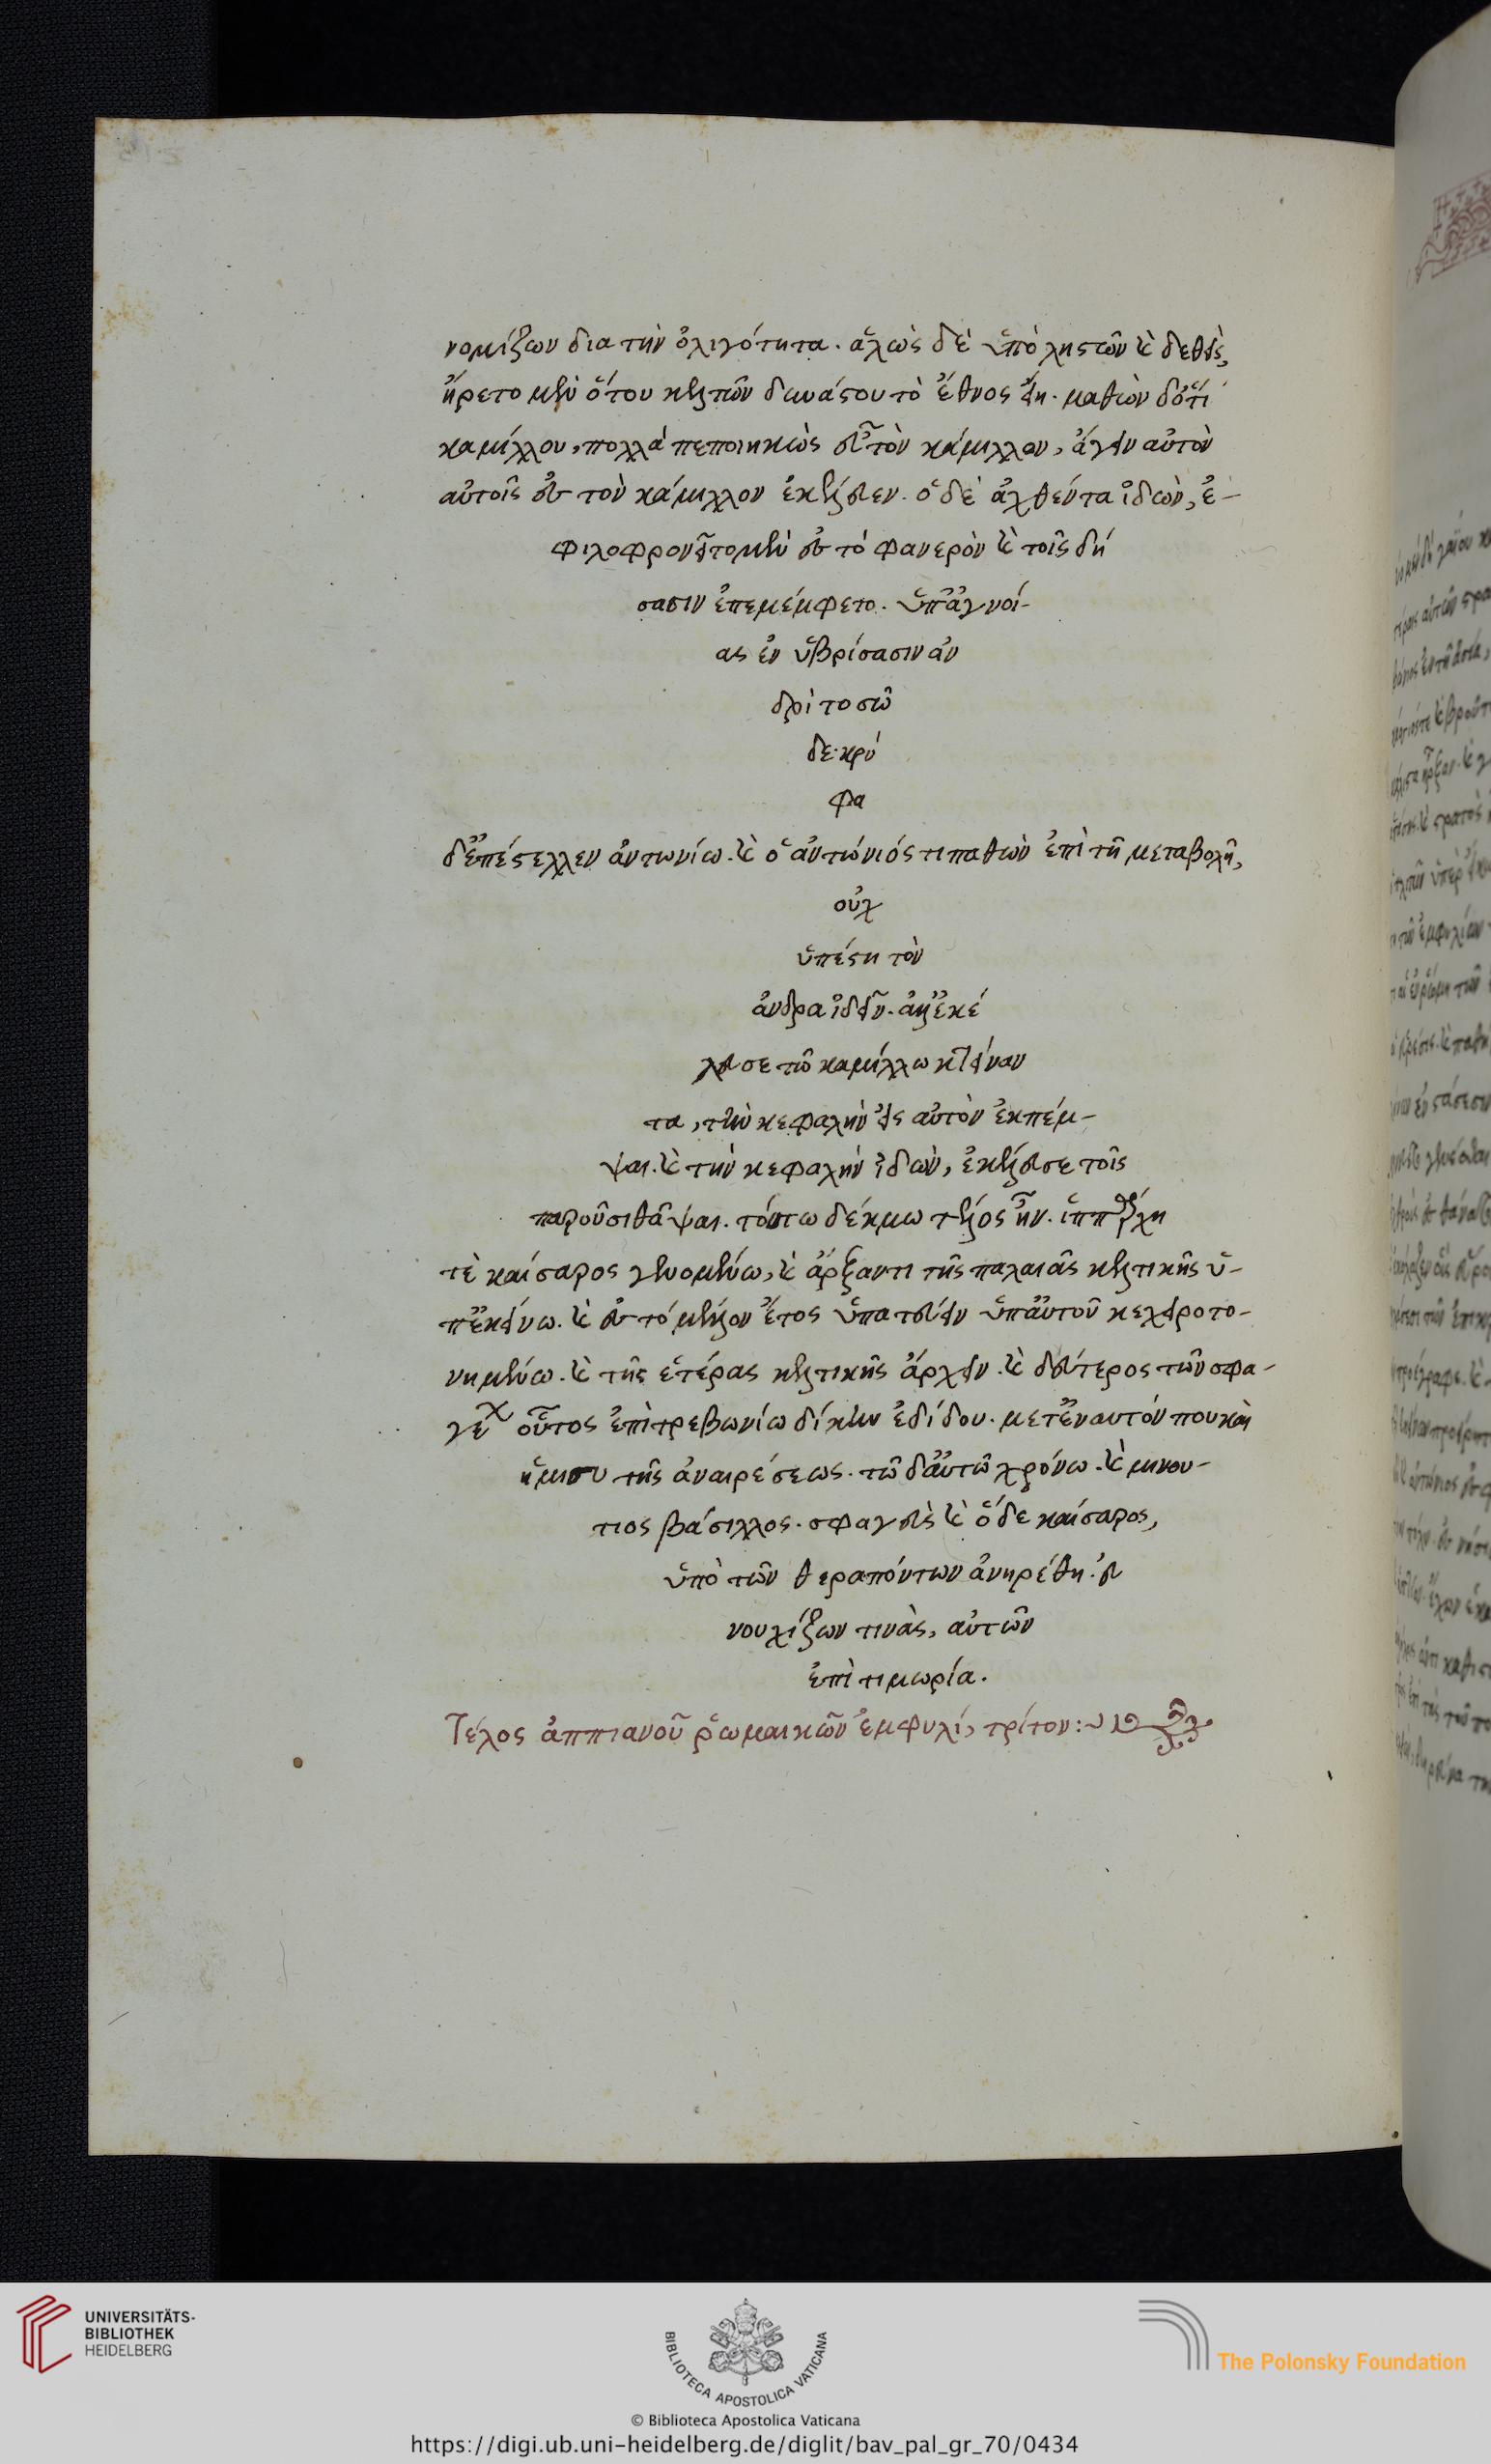 νομίζων δια τὴν ὀλιγότητα. ἁλοὺς δὲ ὑπὸ ληστῶν καὶ δεθεὶς,
ἤρετο μὲν ὅτου κελτῶν δυνάστου τὸ ἔθνος εἴη. μαθὼν δ' ὅτι
καμίλλου, πολλὰ πεποιηκὼς εὖ τὸν κάμιλλον, ἄγειν αὐτὸν
αὐτοῖς ἐς τὸν κάμιλλον ἐκέλευεν. ὁ δὲ ἀχθέντα ἰδὼν, ἐ-
φιλοφρονεῖτο μὲν ἐς τὸ φανερὸν καὶ τοῖς δή
σασιν ἐπεμέμφετο. ὑπ' ἀγνοί-
ας ἐνυβρίσασιν ἀν
δρὶ τοσῶ
δε. κρύ
φα
δ' ἐπέστελλεν ἀντωνίω. καὶ ὁ ἀντώνιός τι παθὼν ἐπὶ τῆ μεταβολῆ,
οὐχ
ὑπέστη τὸν
ἄνδρα ἰδεῖν. ἀλλ' ἐκέ
λευσε τῶ καμίλλω κτείναν
τα, τὴν κεφαλὴν εἰς αὐτὸν ἐκπέμ-
ψαι. καὶ τὴν κεφαλὴν ἰδὼν, ἐκέλευσε τοῖς
παροῦσι θάψαι. τοῦτο δέκμω τέλος ἦν. ἱππάρχη
τὲ καίσαρος γενομένω, καὶ ἄρξαντι τῆς παλαιᾶς κελτικῆς ὑ-
π' ἐκείνω. καὶ ἐς τὸ μέλλον ἔτος ὑπατεύειν ὑπ' αὐτοῦ κεχειροτο-
νημένω. καὶ τῆς ἑτέρας κελτικῆς ἄρχειν. καὶ δεύτερος τῶν σφα-
γέων οὗτος ἐπὶ τρεβωνίω δίκην ἐδίδου. μετ' ἐνιαυτόν που καὶ
ἥμισυ τῆς ἀναιρέσεως. τῶ δ' αὐτῶ χρόνω. καὶ μινου-
τιος βάσιλλος. σφαγεὺς καὶ ὅδε καίσαρος,
ὑπὸ τῶν θεραπόντων ἀνηρέθη. εὐ
νουχίζων τινὰς, αὐτῶν
ἐπὶ τιμωρία.
Τέλος ἀππιανοῦ ῥωμαικῶν ἐμφυλί, τρίτον:
UNIVERSITÄTS-
BIBLIOTHEK
HEIDELBERG
BIBLIOTECA APOSTOLICA VATICANA
The Polonsky Foundation
© Biblioteca Apostolica Vaticana
https://digi.ub.uni-heidelberg.de/diglit/bav_pal_gr_70/0434